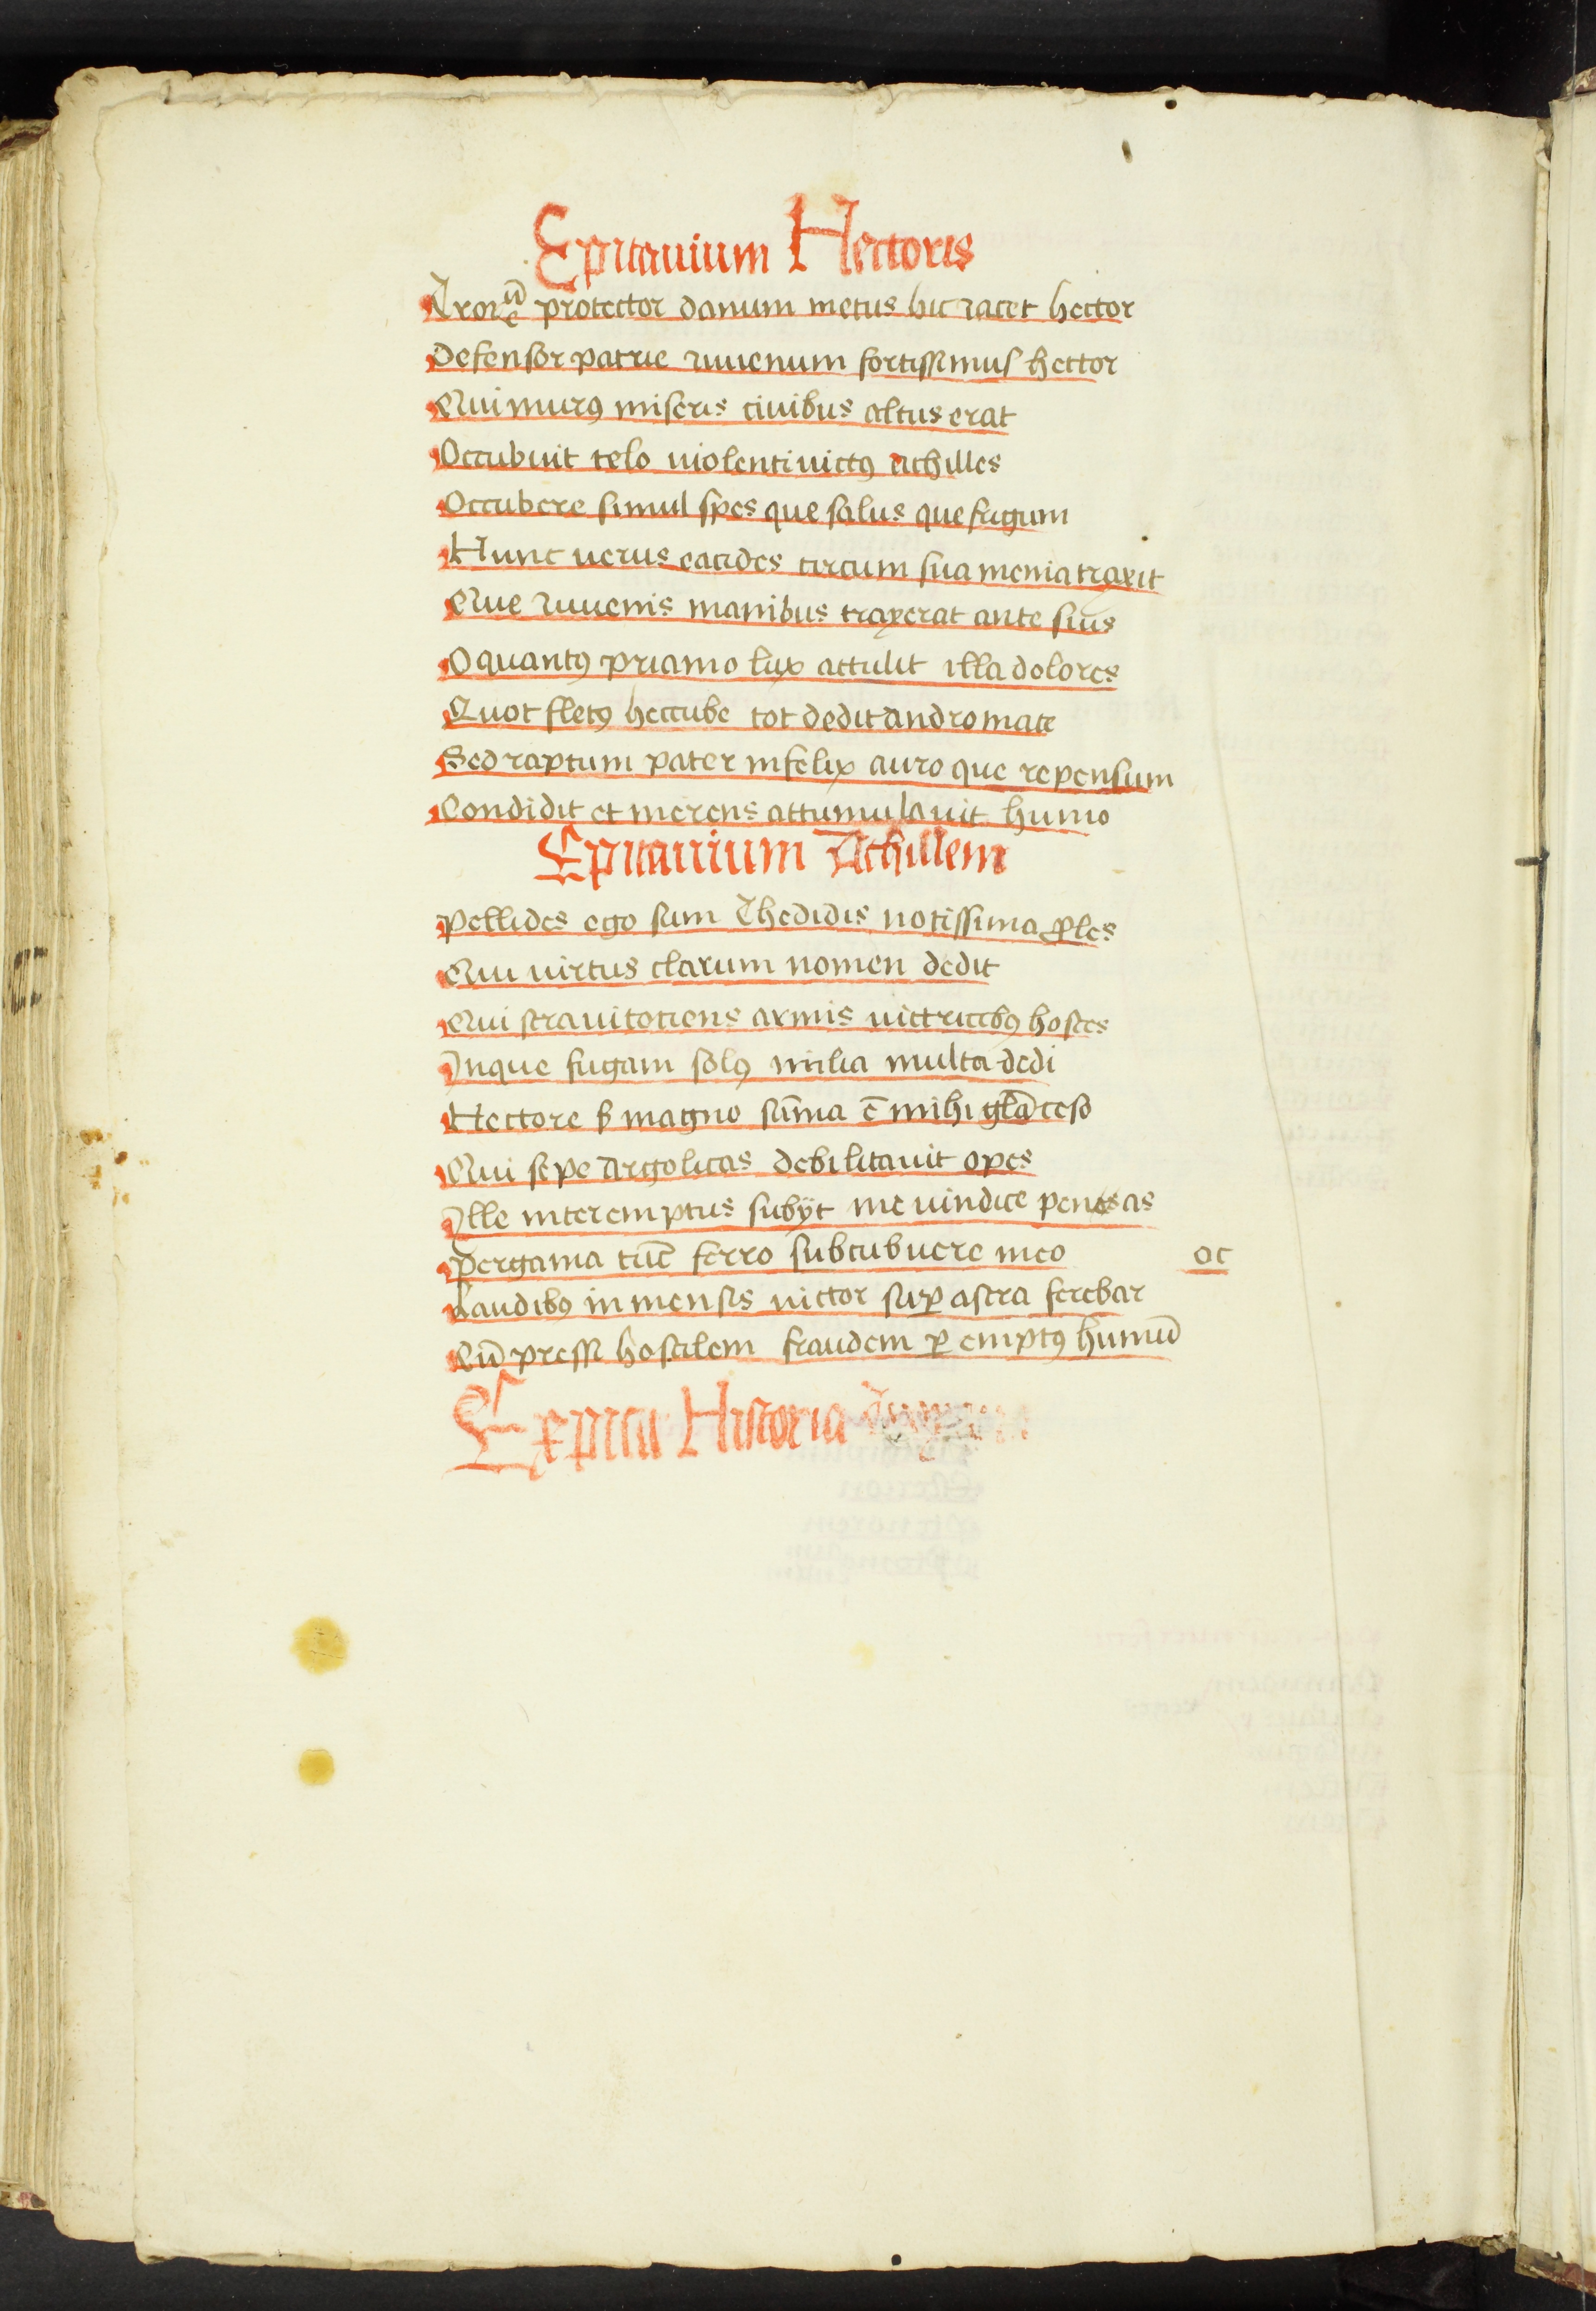 Epitauium Hectoris
Troiū protector danum metus hic iacet hector
Defensor patrie iuuenum fortissimus hector
Qui murꝰ miseris ciuibus altus erat
Occubuit telo uiolenti uictꝰ achilles
Occubere simul spes que salus que frigum
Hunc uerus eacides circum sua menia traxit
Que iuuenis manibus traxerat ante suis
O quantꝰ priamo lux attulit illa dolores
Quot fletꝰ heccube tot dedit andromate
Sed raptum pater infelix auro que repensum
Condidit et merens attumulauit humo
Epitauium Achillem
Pellides ego sum Thedidis notissima ꝓles
Cui uirtus clarum nomen dedit
Qui strauitotiens armis uictricibꝰ hostes
Inque fugam solꝰ milia multa dedi
Hectore ꝭ magno sūma ē mihi gła ceso
Qui sepe argolicas debilitauit opes
Ille interemptus subijt me uindice penas
Pergama tūc ferro subcubuere meo
oc
Laudibꝰ inmensis uictor suꝑ astra ferebar
Cū pressi hostilem fraudem ꝑ emptꝰ humū
Expicit Historia